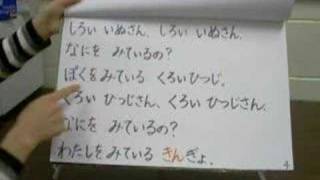 しろい いぬさん、しろい いぬさん、
なにを みているの?
ぼくをみている くろいひつじ。
くろい ひつじさん、くろい ひつじさん、
なにを みているの?
わたしをみている きんぎょ。
4